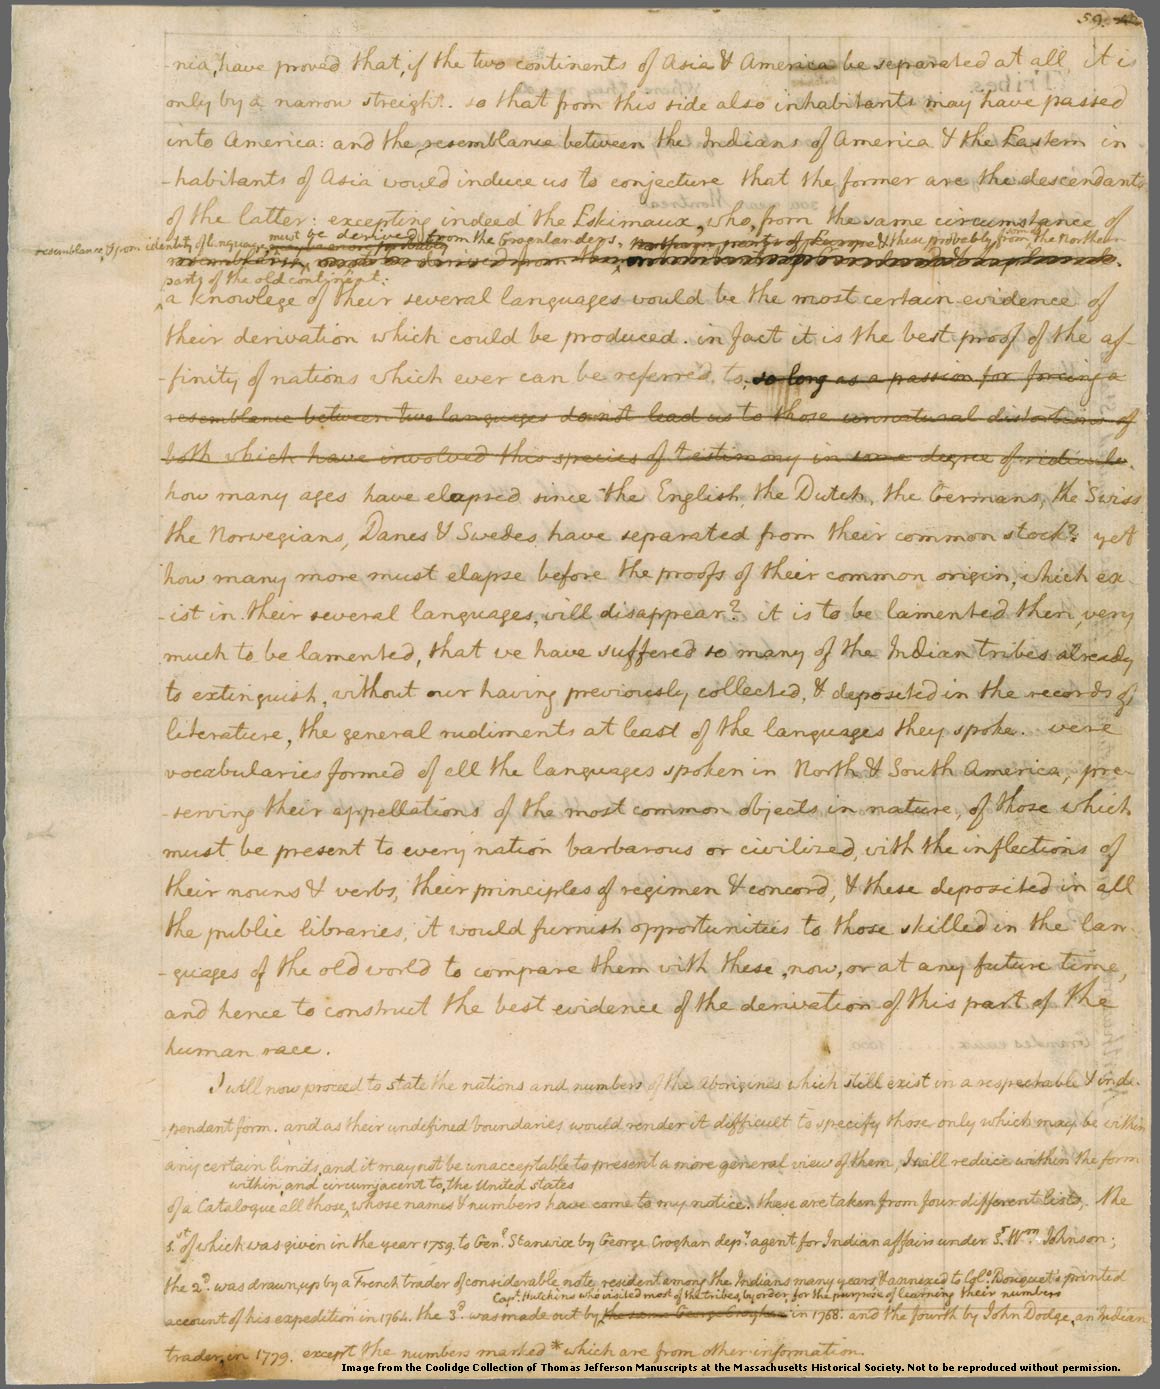 59.
-nia, have proved that, if the two continents of Asia & America be separated at all, it is
only by a narrow streight. so that from this side also inhabitants may have passed
into America: and the resemblance between the Indians of America & the Eastern in
-habitants of Asia would induce us to conjecture that the former are the descendants
of the latter: excepting indeed the Eskimaux, who, from the same circumstance of
resemblance, & from identity of language, must be derived from the Groenlanders, & these probably from some of the Northern
parts of the old continent:
a knowlege of their several languages would be the most certain evidence of
their derivation which could be produced. in fact it is the best proof of the af-
-finity of nations which ever can be referred to. so long as a passion for forcing a
resemblance between two languages do not lead us to those unnatural distortions of
both which have involved this species of testimony in some degree of ridicule.
how many ages have elapsed since the English, the Dutch, the Germans, the Swiss
the Norwegians, Danes & Swedes have separated from their common stock? yet
how many more must elapse before the proofs of their common origin, which ex-
-ist in their several languages, will disappear? it is to be lamented then, very
much to be lamented, that we have suffered so many of the Indian tribes already
to extinguish, without our having previously collected, & deposited in the records of
literature, the general rudiments at least of the languages they spoke. were
vocabularies formed of all the languages spoken in North & South America, pre-
-serving their appellations of the most common objects in nature, of those which
must be present to every nation barbarous or civilized, with the inflections of
their nouns & verbs, their principles of regimen & concord, & these deposited in all
the public libraries, it would furnish opportunities to those skilled in the lan-
-guages of the old world to compare them with these, now, or at any future time,
and hence to construct the best evidence of the derivation of this part of the
human race.
I will now proceed to state the nations and numbers of the Aborigines which still exist in a respectable & inde-
pendant form. and as their undefined boundaries would render it difficult to specify those only which may be within
any certain limits, and it may not be unacceptable to present a more general view of them, I will reduce within the form
within, and circumjacent to, the United states
of a Catalogue all those, whose names & numbers have come to my notice. these are taken from four different lists, the
1st. of which was given in the year 1759. to Genl. Stanwix by George Croghan depy. agent for Indian affairs under Sr. Wm. Johnson;
the 2d. was drawn up by a French trader of considerable note, resident among the Indians many years & annexed to Colo. Bouquet's printed
Capt. Hutchins who visited most of the tribes, by order, for the purpose of learning their numbers
account of his expedition in 1764. the 3d. was made out by the same George Croghan in 1768. and the fourth by John Dodge, an Indian
trader, in 1779. except the numbers marked * which are from other information.
Image from the Coolidge Collection of Thomas Jefferson Manuscripts at the Massachusetts Historical Society. Not to be reproduced without permission.